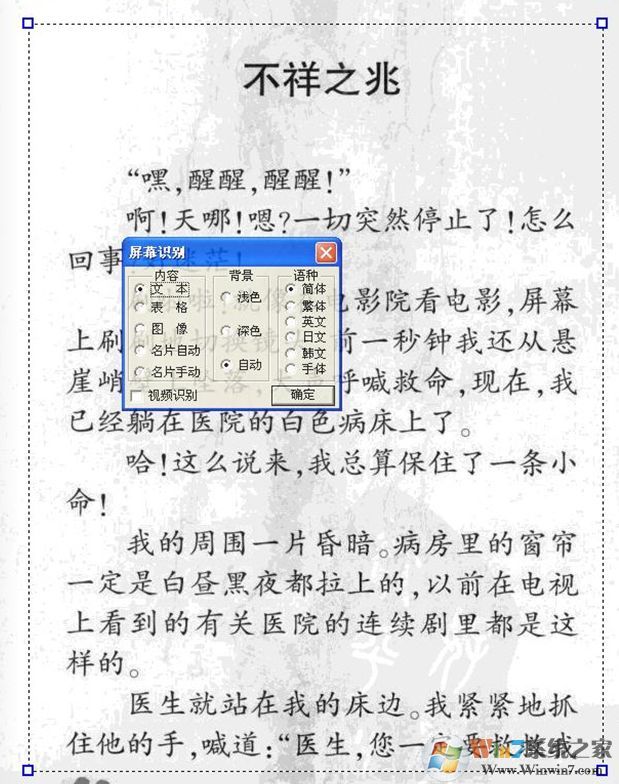 不祥之兆
“嘿,醒醒,醒醒!”
啊!天哪!嗯?一切突然停止了!怎么
回事
屏幕识别
内容
文 本
表 格
图 像
名片自动
名片手动
视频识别
背景
浅色
深色
自动
语种
简体
繁体
英文
日文
韩文
手体
确定
电影院看电影,屏幕
上刷 前一秒钟我还从悬
崖峭 呼喊救命,现在,我
已经躺在医院的白色病床上了。
哈!这么说来,我总算保住了一条小
命!
我的周围一片昏暗。病房里的窗帘
一定是白昼黑夜都拉上的,以前在电视
上看到的有关医院的连续剧里都是这
样的。
医生就站在我的床边。我紧紧地抓
住他的手,喊道:“医生,您一定要救救我
Www.Winwin7.com